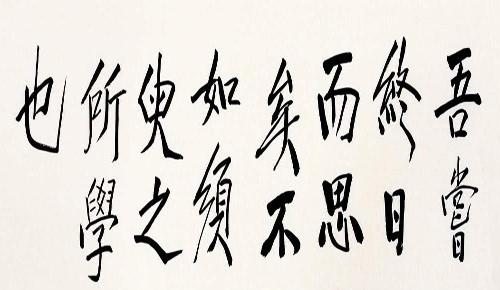 吾嘗
終日
而思
矣不
如須
臾之
所學
也